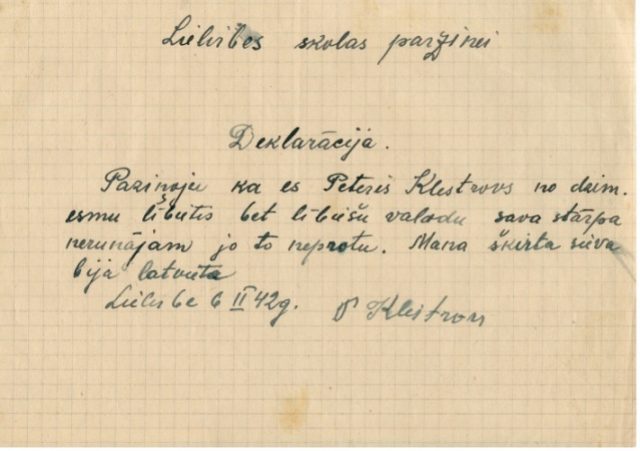 Lielirbes skolas parzinei
Deklarācija.
Pazinoju ka es Peteris Klestrovs no dzim.
esmu lībietis bet lībiešu valodu sava stārpa
nerunājam jo to neprotu. Mana šķirta sieva
bija latviete
Lielirbe 6 II 42g. P Klestrovs